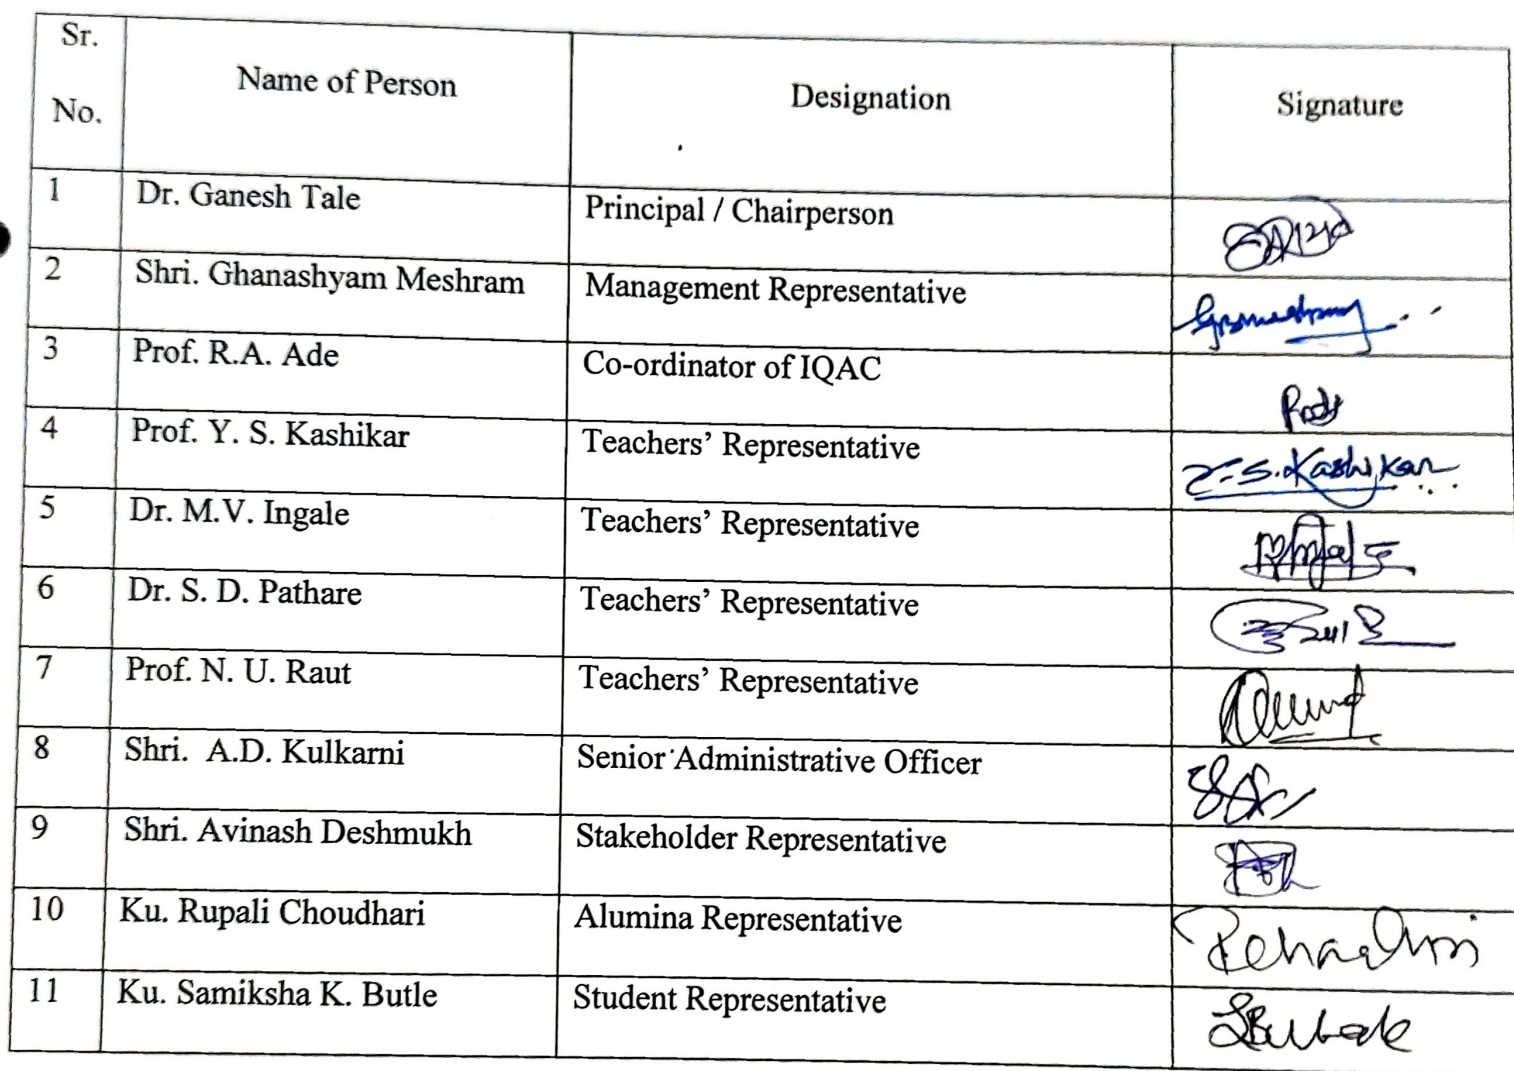 Sr. No. Name of Person Designation Signature
1 Dr. Ganesh Tale Principal / Chairperson
2 Shri. Ghanashyam Meshram Management Representative
3 Prof. R.A. Ade Co-ordinator of IQAC
4 Prof. Y. S. Kashikar Teachers’ Representative Y.S.Kashikar
5 Dr. M.V. Ingale Teachers’ Representative
6 Dr. S. D. Pathare Teachers’ Representative
7 Prof. N. U. Raut Teachers’ Representative
8 Shri. A.D. Kulkarni Senior Administrative Officer
9 Shri. Avinash Deshmukh Stakeholder Representative
10 Ku. Rupali Choudhari Alumina Representative
11 Ku. Samiksha K. Butle Student Representative